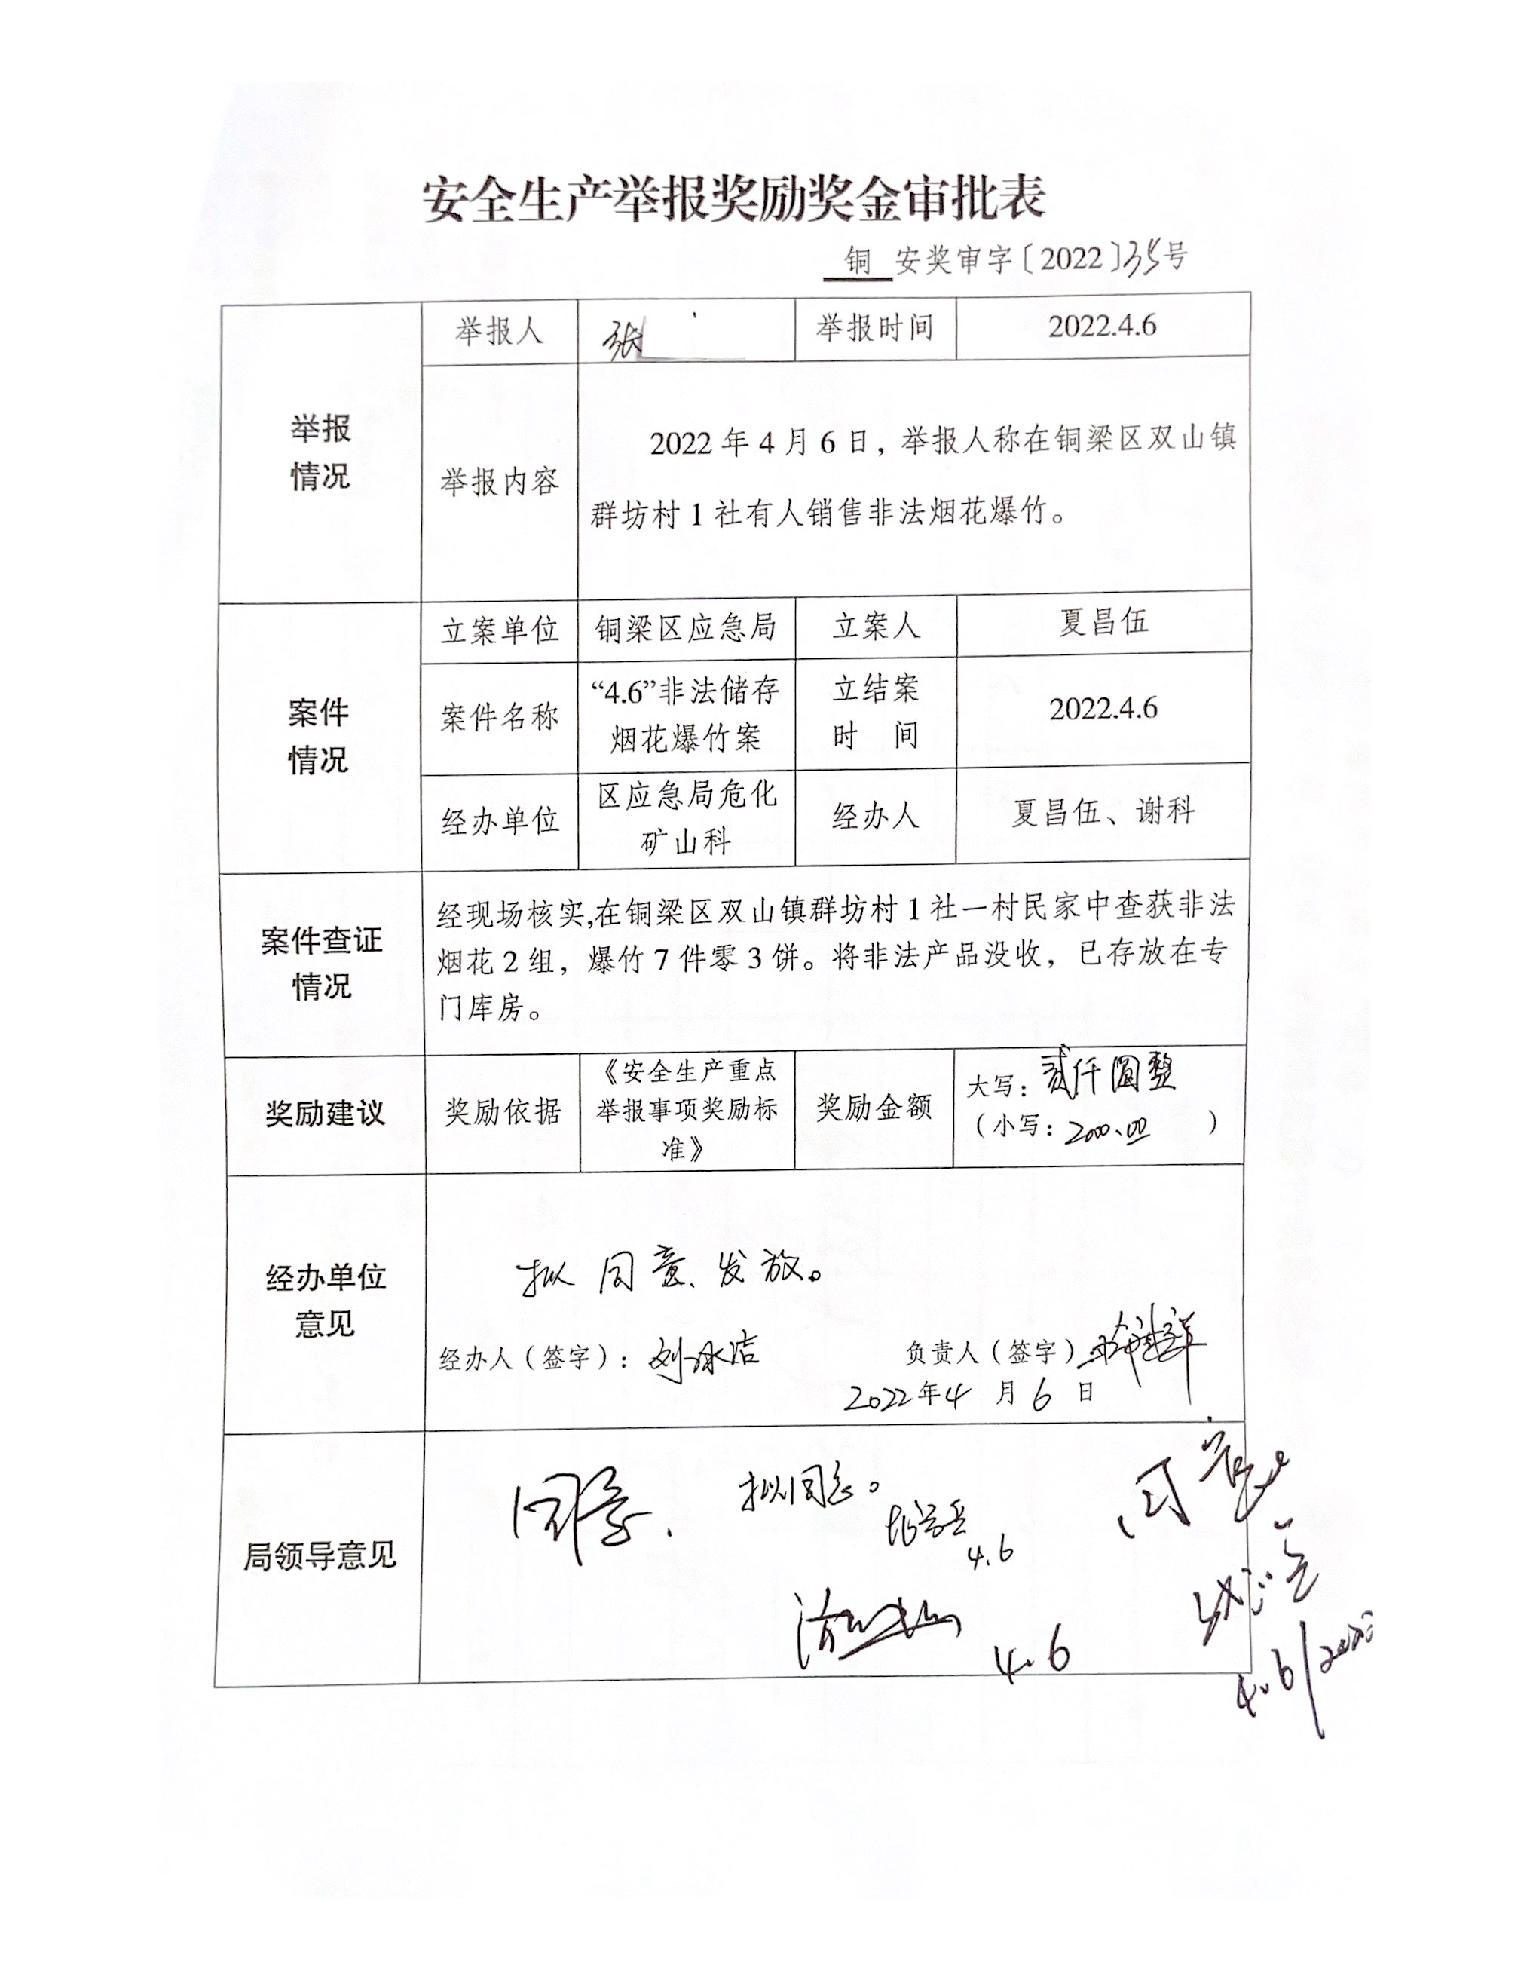 安全生产举报奖励奖金审批表
铜 安奖审字〔2022〕35号
举报
情况
举报人
张
举报时间
2022.4.6
举报内容
2022年4月6日，举报人称在铜梁区双山镇
群坊村1社有人销售非法烟花爆竹。
案件
情况
立案单位
铜梁区应急局
立案人
夏昌伍
案件名称
“4.6”非法储存
烟花爆竹案
立结案
时 间
2022.4.6
经办单位
区应急局危化
矿山科
经办人
夏昌伍、谢科
案件查证
情况
经现场核实,在铜梁区双山镇群坊村1社一村民家中查获非法
烟花2组，爆竹7件零3饼。将非法产品没收，已存放在专
门库房。
奖励建议
奖励依据
《安全生产重点
举报事项奖励标
准》
奖励金额
大写：贰仟圆整
（小写：2000.00 ）
经办单位
意见
拟同意发放。
经办人（签字）：刘冰洁
负责人（签字）
2022年4月6日
局领导意见
同意.
拟同意。
4.6
4.6
同意
4.6/2022